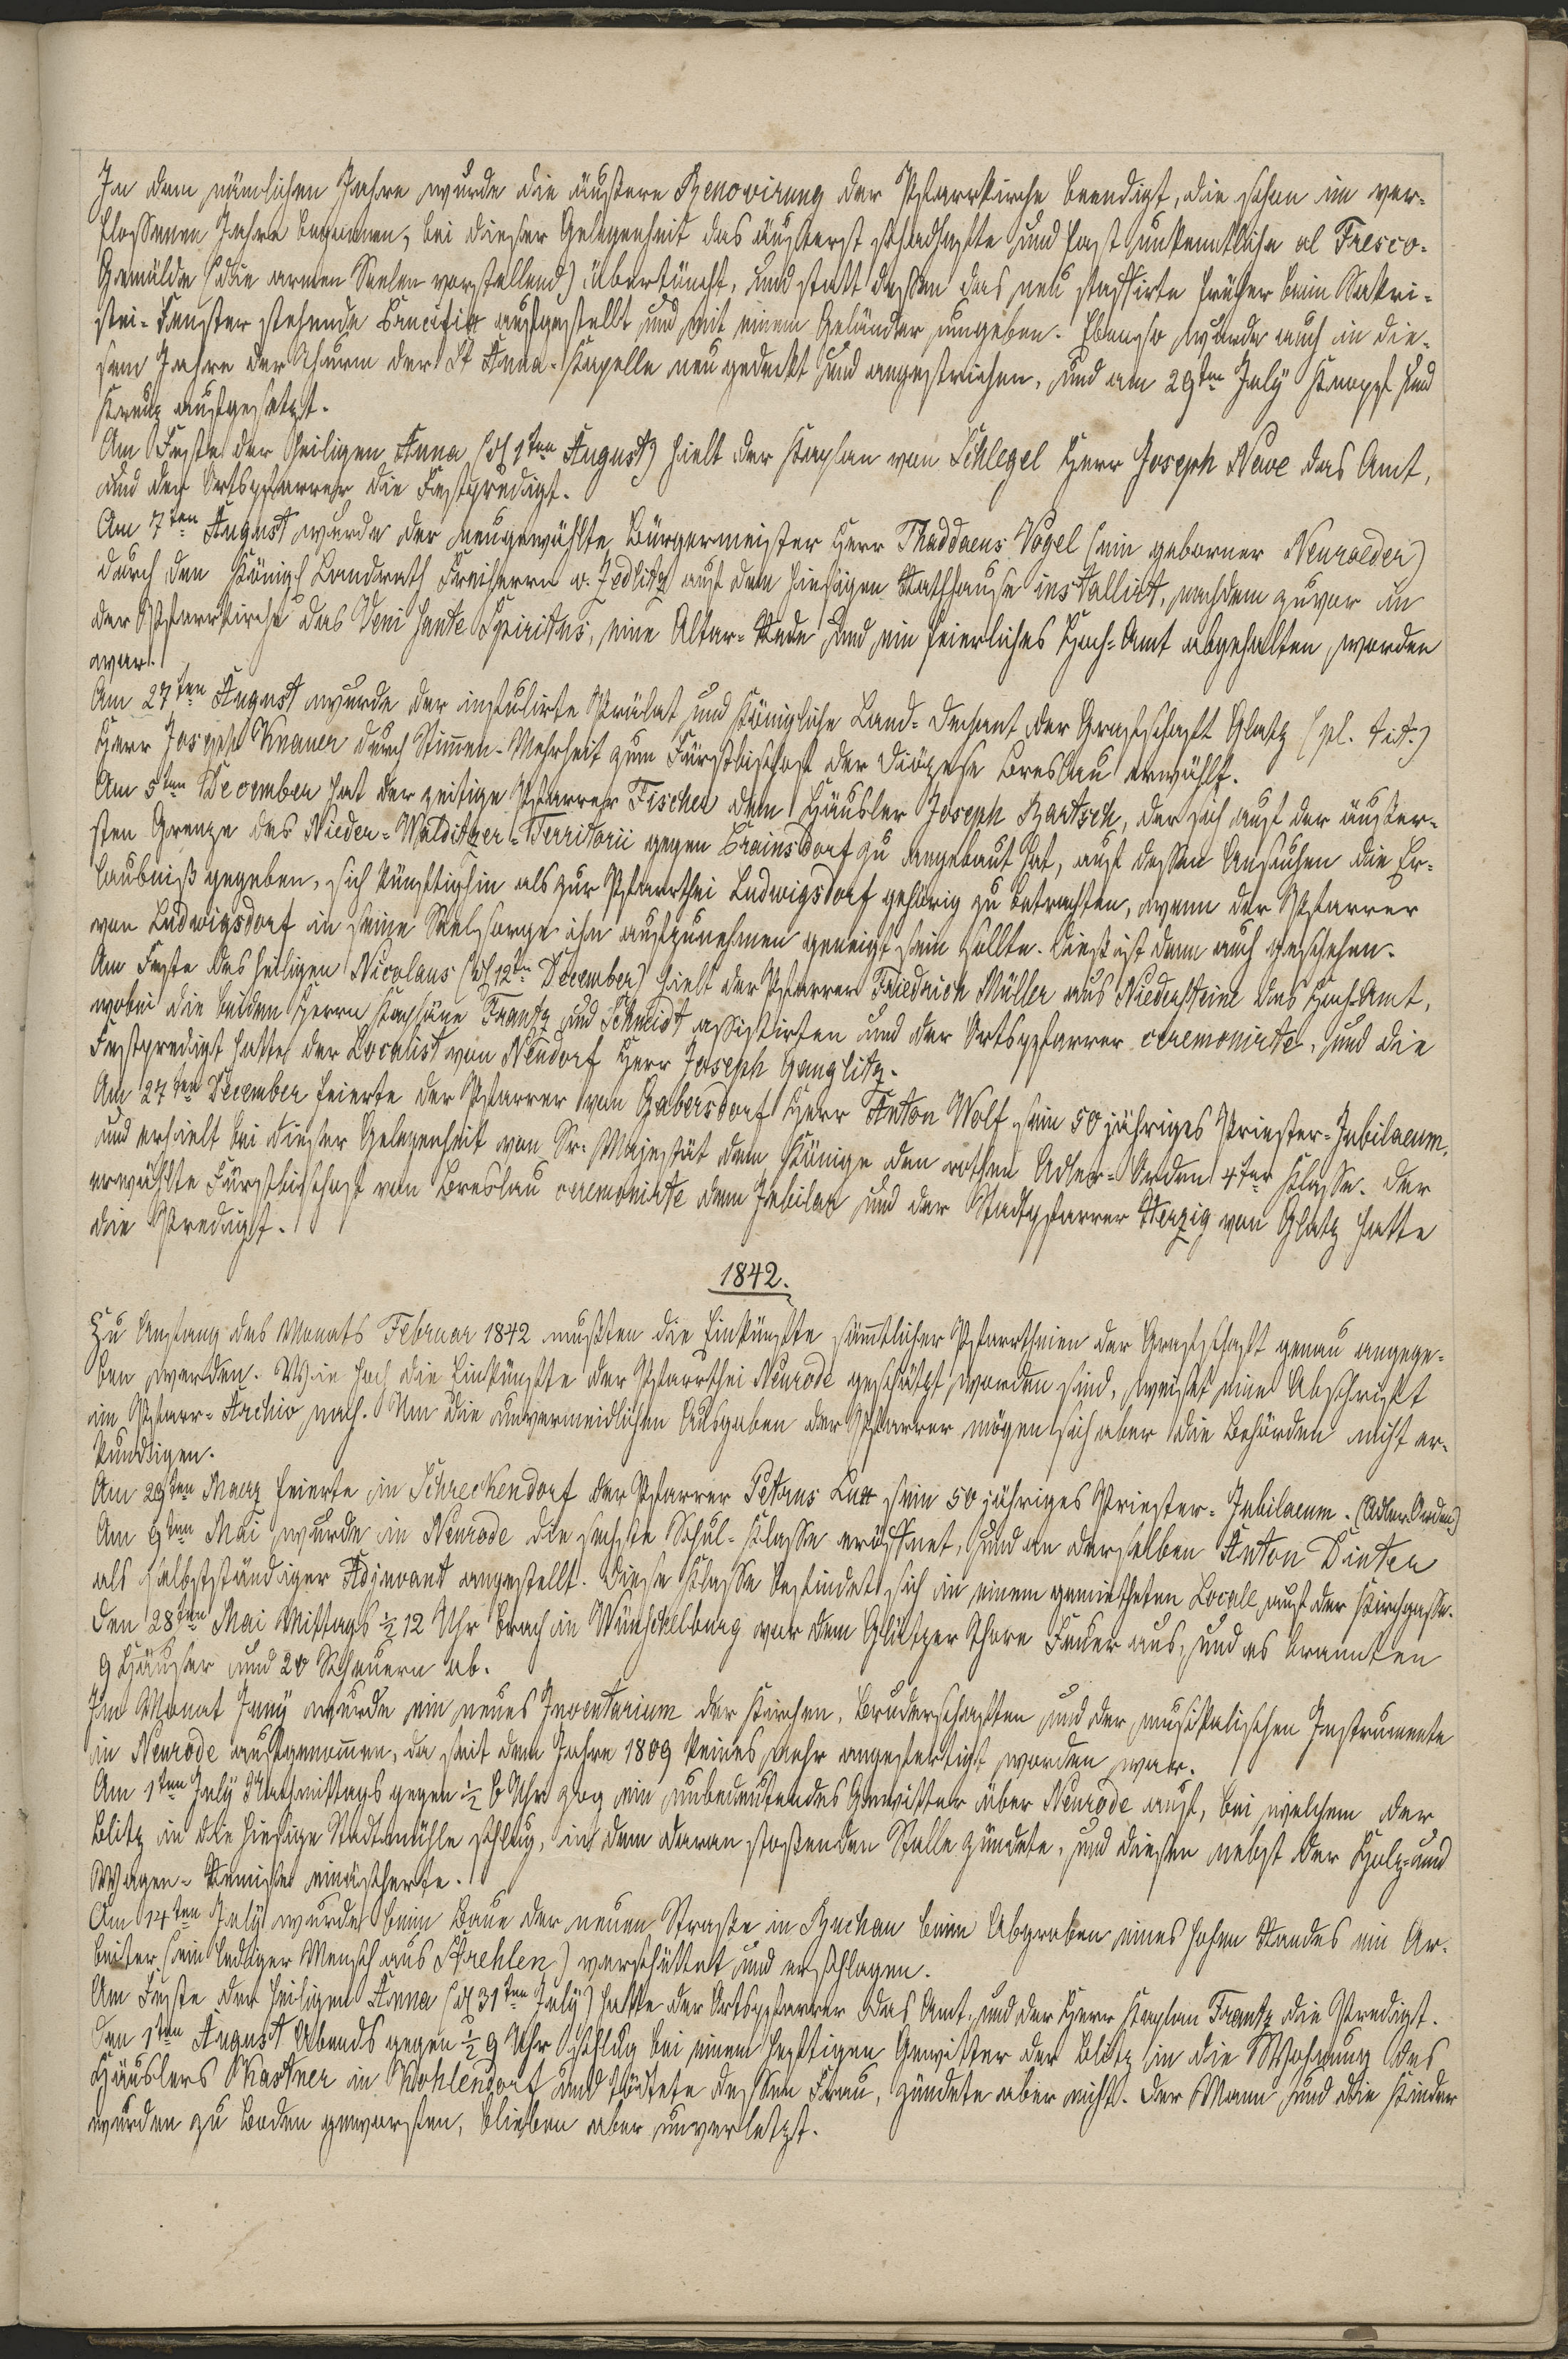 In dem nämlichen Jahre wurde die äußere Renovirung der Pfarrkirche beendigt, die schon im ver-
flossenen Jahre begonnen, bei dieser Gelegenheit das äußerst schadhafte und fast unkenntliche al Fresco-
Gemälde (die armen Seelen vorstellend) übertüncht, und statt dessen das neu staffirte früher beim Sakri-
stei-Fenster stehende Crucifix aufgestellt und mit einem Geländer umgeben. Ebenso wurde auch in die-
sem Jahre der Thurm der St Anna-Kapelle neu gedeckt und angestrichen, und am 29ten July Knopf und
Kreuz aufgesetzt.
Am Feste der heiligen Anna (d 1ten August) hielt der Kaplan von Schlegel Herr Joseph Neve das Amt,
und der Ortspfarrer die Festpredigt.
Am 7ten August wurde der neugewählte Bürgermeister Herr Thaddaeus Vogel (ein geborner Neuroeder)
durch den Königl Landrath Freiherrn v. Zedlitz auf dem hiesigen Rathhause installirt, nachdem zuvor in
der Pfarrkirche das Veni Sancte Spiritus, eine Altar-Rede und ein feierliches Hoch-Amt abgehalten worden
war.
Am 27ten August wurde der infulirte Prälat und Königliche Land-Dechant der Grafschaft Glatz (pl. tit.)
Herr Joseph Knauer durch Stimmen-Mehrheit zum Fürstbischof der Diözese Breslau erwählt.
Am 5ten December hat der zeitige Pfarrer Fischer dem Häusler Joseph Bartsch, der sich auf der äußer-
sten Grenze des Nieder-Walditzer-Territorii gegen Crainsdorf zu angebaut hat, auf dessen Ansuchen die Er-
laubniß gegeben, sich künftighin als zur Pfarrthei Ludwigsdorf gehörig zu betrachten, wenn der Pfarrer
von Ludwigsdorf in seine Seelsorge ihn aufzunehmen geneigt sein sollte. Dieß ist dann auch geschehen.
Am Feste des heiligen Nicolaus (d 12ten December) hielt der Pfarrer Friedrich Müller aus Niedersteine das Hoch-Amt,
wobei die beiden Herrn Kapläne Frantz und Schmidt assistirten und der Ortspfarrer ceremonirte, und die
Festpredigt hatte der Localist von Neudorf Herr Joseph Ganglitz.
Am 27ten December feierte der Pfarrer von Gabersdorf Herr Anton Wolf sein 50 jähriges Priester-Jubilaeum,
und erhielt bei dieser Gelegenheit von Sr. Majestät dem Könige den rothen Adler-Orden 4ter Klasse. Der
erwählte Fürstbischof von Breslau ceremonirte dem Jubilar und der Stadtpfarrer Herzig von Glatz hatte
die Predigt.
1842.
Zu Anfang des Monats Februar 1842 mußten die Einkünfte sämtlicher Pfarrtheien der Grafschaft genau angege-
ben werden. Wie hoch die Einkünfte der Pfarrthei Neurode geschätzt worden sind, weiset eine Abschrift
im Pfarr-Archiv nach. Um die unvermeidlichen Ausgaben der Pfarrer mögen sich aber die Behörden nicht er-
kundigen.
Am 29ten Maerz feierte in Schreckendorf der Pfarrer Petrus Lux sein 50 jähriges Priester-Jubilaeum. (Adler Orden)
Am 9ten Mai wurde in Neurode die sechste Schul-Klasse eröffnet, und an derselben Anton Dinter
als selbstständiger Adjuvant angestellt. Diese Klasse befindet sich in einem gemietheten Locale auf der Kirchgasse.
Den 28ten Mai Mittags ½ 12 Uhr brach in Wünschelburg vor dem Glatzer Thore Feuer aus, und es brannten
9 Häuser und 20 Scheuern ab.
Im Monat Juny wurde ein neues Inventarium der Kirchen, Bruderschaften und der musikalischen Instrumente
in Neurode aufgenommen, da seit dem Jahre 1809 keines mehr angefertigt worden war.
Am 1ten July Nachmittags gegen ½ 6 Uhr zog ein unbedeutendes Gewitter über Neurode auf, bei welchem der
Blitz in die hiesige Stadtmühle schlug, in dem daran stoßenden Stalle zündete, und diesen nebst der Holz- und
Wagen-Remise einäscherte.
Am 14ten July wurde beim Baue der neuen Straße in Buchau beim Abgraben eines hohen Randes ein Ar-
beiter (ein lediger Mensch aus Strehlen) verschüttet und erschlagen.
Am Feste der heiligen Anna (d 31ten July) hatte der Ortspfarrer das Amt, und der Herr Kaplan Frantz die Predigt.
Den 1ten August Abends gegen ½ 9 Uhr schlug bei einem heftigen Gewitter der Blitz in die Wohnung des
Häuslers Kastner in Kohlendorf und tödtete dessen Frau, zündete aber nicht. Der Mann und die Kinder
wurden zu Boden geworfen, blieben aber unverletzt.